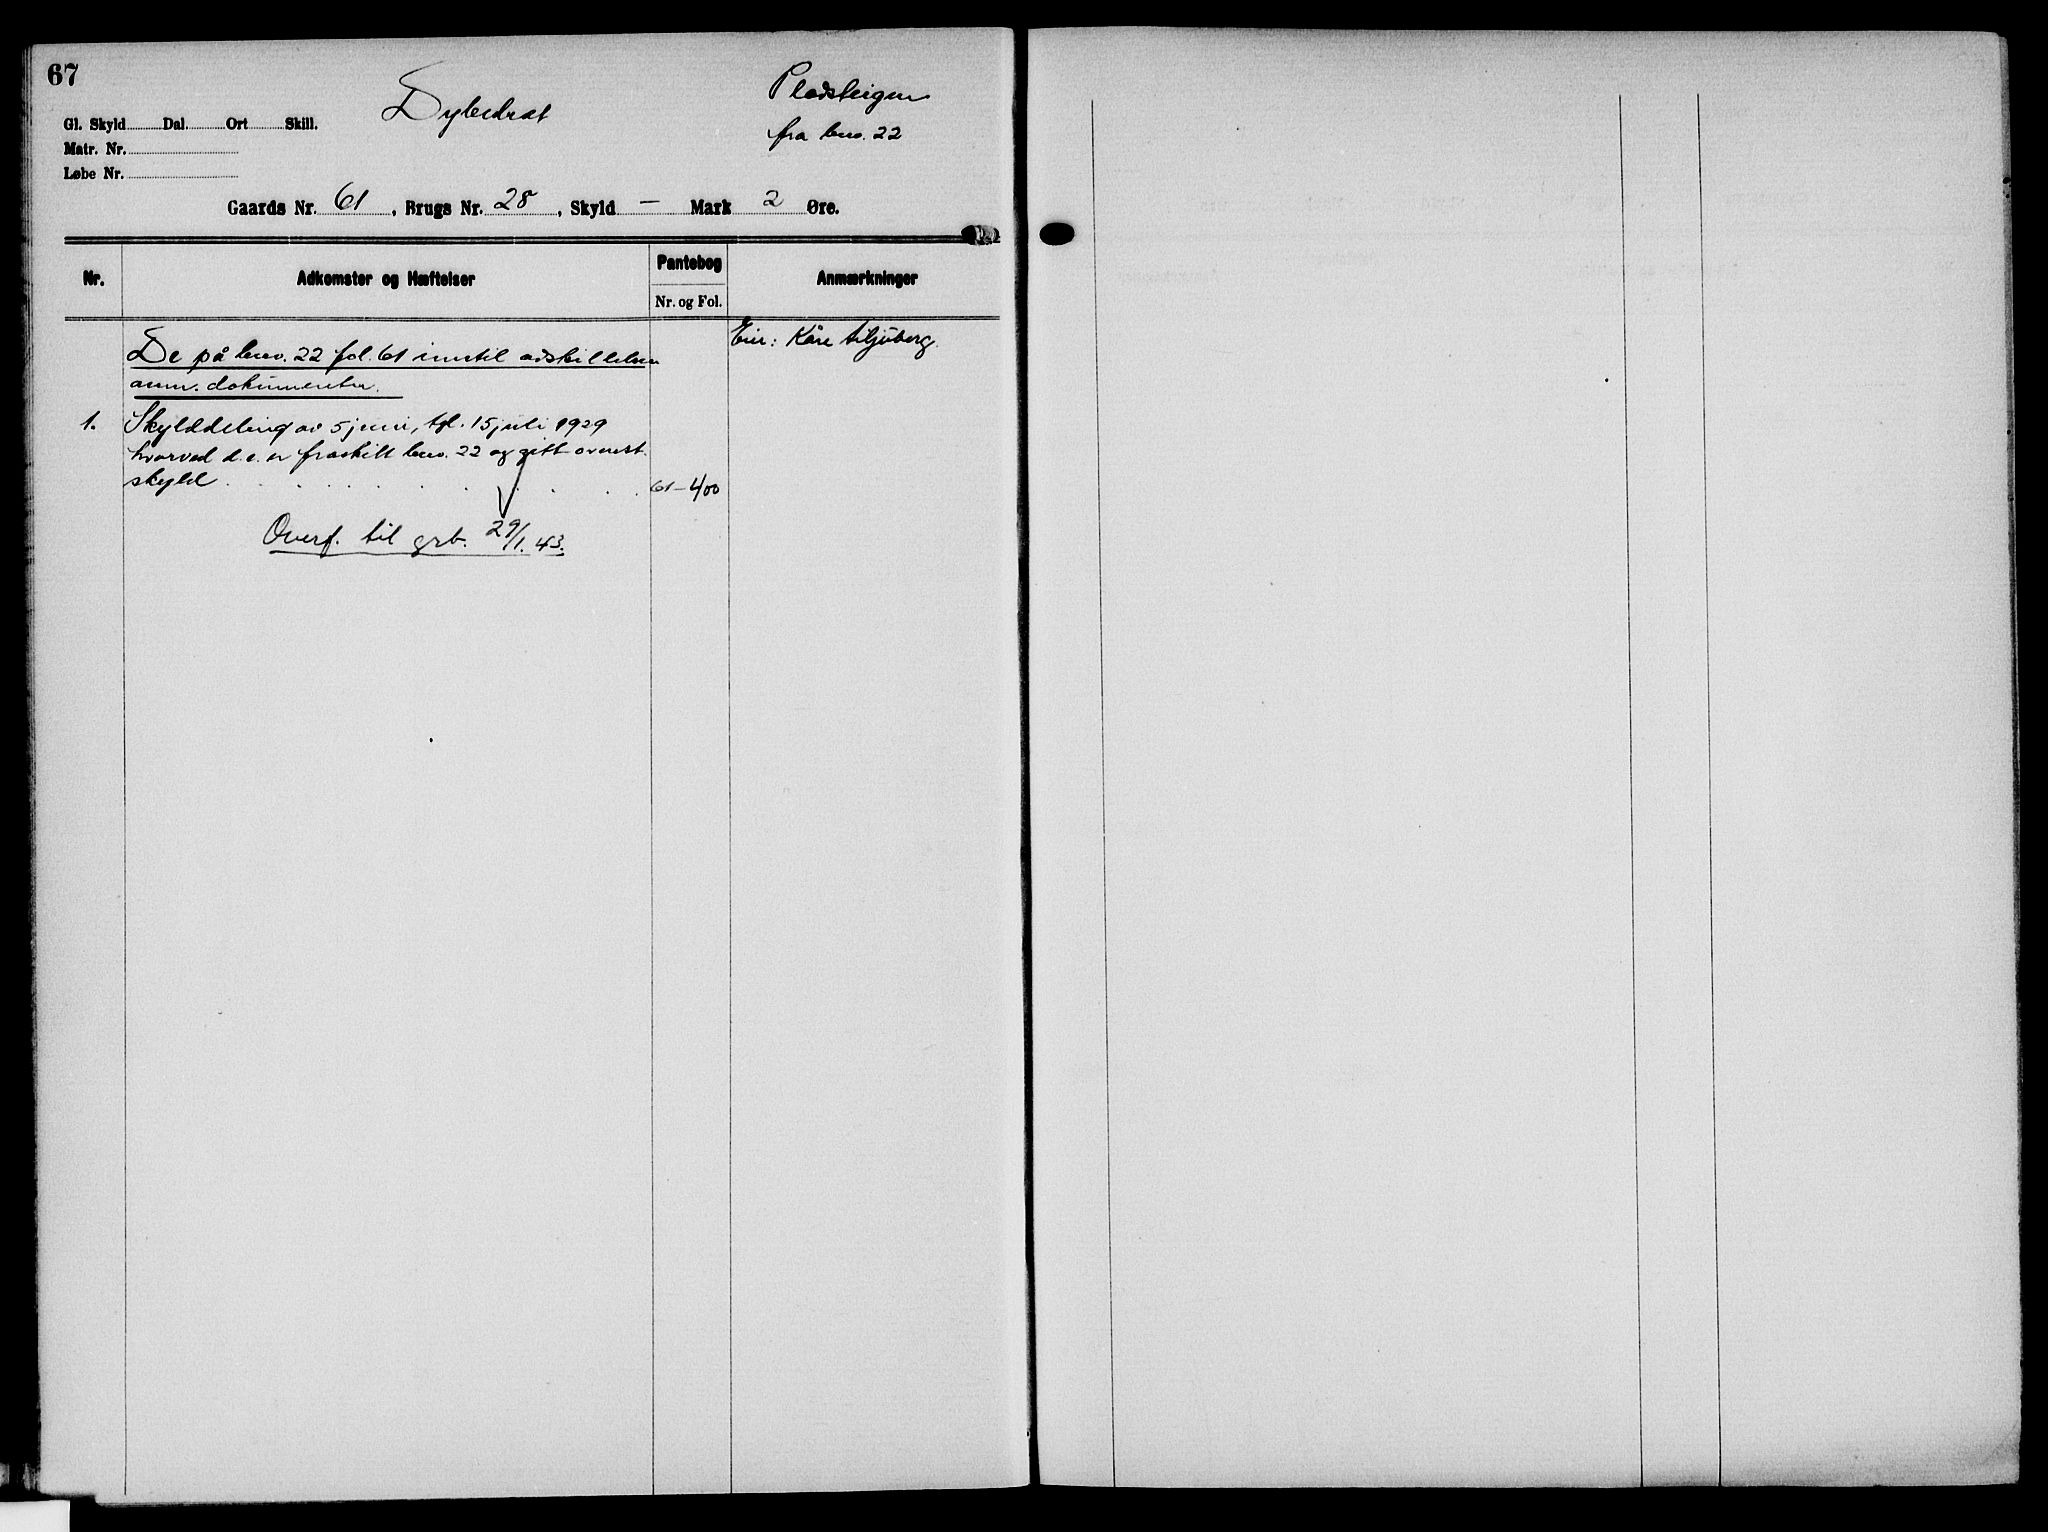 67
Dybedrat
Pladsteigen
fra brno. 22
Gl. Skyld Dal. Ort Skill.
Matr. Nr.
Løbe Nr.
Gaards Nr. 61, Brugs Nr. 28, Skyld — Mark 2 Øre.
Nr.
Adkomster og Hæftelser
Pantebog
Nr. og Fol.
Anmærkninger
De på brno. 22 fol. 61 inntil adskillelsen
anm. dokumenter.
Eier: Kåre Liljuberg.
1. Skylddeling av 5 juni, tgl. 15 juli 1929
hvorved d.e. er fraskilt brno. 22 og gitt ovenst.
skyld . . . . . . . . . 61-400
Overf. til grb. 29/1.43.